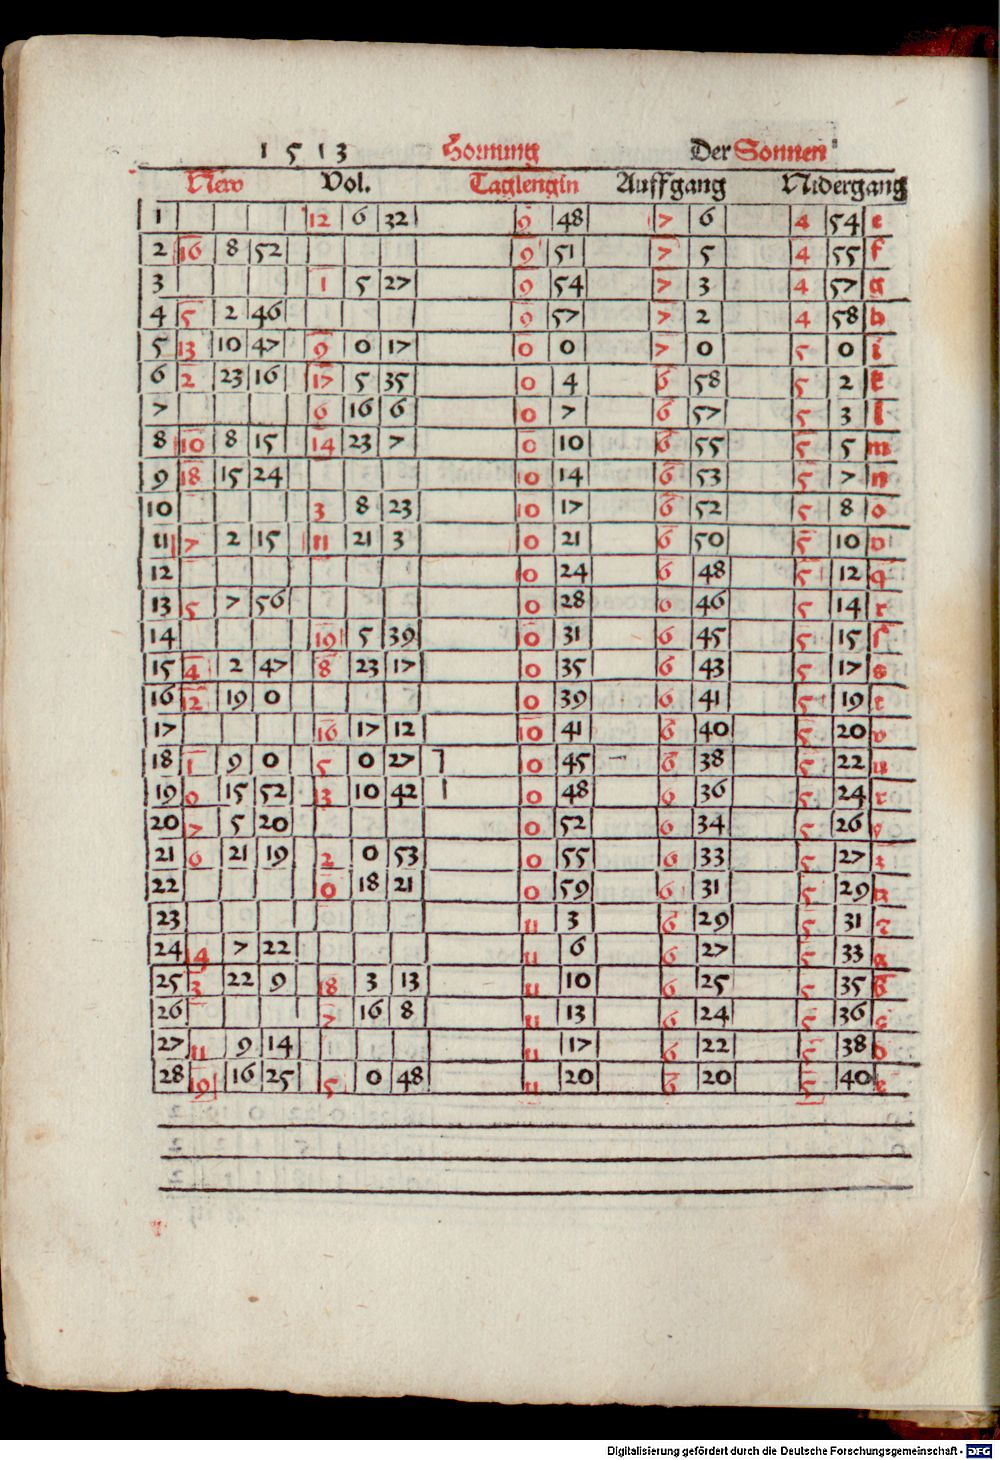 1 5 1 3 Hornung Der Sonnen
New Vol. Taglengin Auffgang Nidergang
1 12 6 32 9 48 7 6 4 54 e
2 16 8 52 9 51 7 5 4 55 f
3 1 5 27 9 54 7 3 4 57 g
4 5 2 46 9 57 7 2 4 58 h
5 13 10 47 9 0 17 0 0 7 0 5 0 i
6 2 23 16 17 5 35 0 4 6 58 5 2 k
7 6 16 6 0 7 6 57 5 3 l
8 10 8 15 14 23 7 0 10 6 55 5 5 m
9 18 15 24 10 14 6 53 5 7 n
10 3 8 23 10 17 6 52 5 8 o
11 7 2 15 11 21 3 0 21 6 50 5 10 p
12 0 24 6 48 5 12 q
13 5 7 56 0 28 6 46 5 14 r
14 19 5 39 0 31 6 45 5 15 ſ
15 4 2 47 8 23 17 0 35 6 43 5 17 s
16 12 19 0 0 39 6 41 5 19 t
17 16 17 12 10 41 6 40 5 20 v
18 1 9 0 5 0 27 0 45 6 38 5 22 u
19 9 15 52 3 10 42 0 48 6 36 5 24 x
20 7 5 20 0 52 6 34 5 26 y
21 6 21 19 2 0 53 0 55 6 33 5 27 z
22 0 18 21 0 59 6 31 5 29
23 11 3 6 29 5 31
24 14 7 22 11 6 6 27 5 33 a
25 3 22 9 18 3 13 11 10 6 25 5 35 b
26 7 16 8 11 13 6 24 5 36 c
27 11 9 14 11 17 6 22 5 38 d
28 19 16 25 5 0 48 11 20 6 20 5 40 e
Digitalisierung gefördert durch die Deutsche Forschungsgemeinschaft - DFG